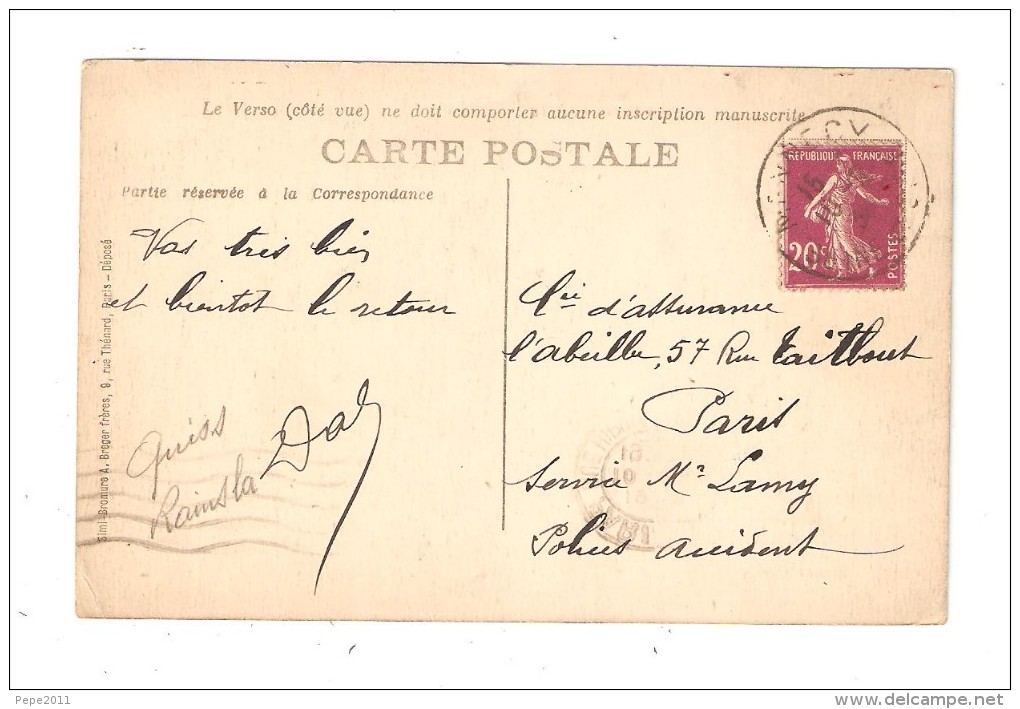 Le Verso (côté vue) ne doit comporter aucune inscription manuscrite
CARTE POSTALE
Partie réservée à la Correspondance
Simi-Bromure A. Breger frères, 9, rue Thénard, Paris – Déposé
Vas très bien
et bientot le retour
Quiss
RÉPUBLIQUE FRANÇAISE
20c
POSTES
Cie d'assurance
l'abeille, 57 Rue Taitbout
Paris
Service Mr Lamy
Polices Accident
Pepe2011
www.delcampe.net